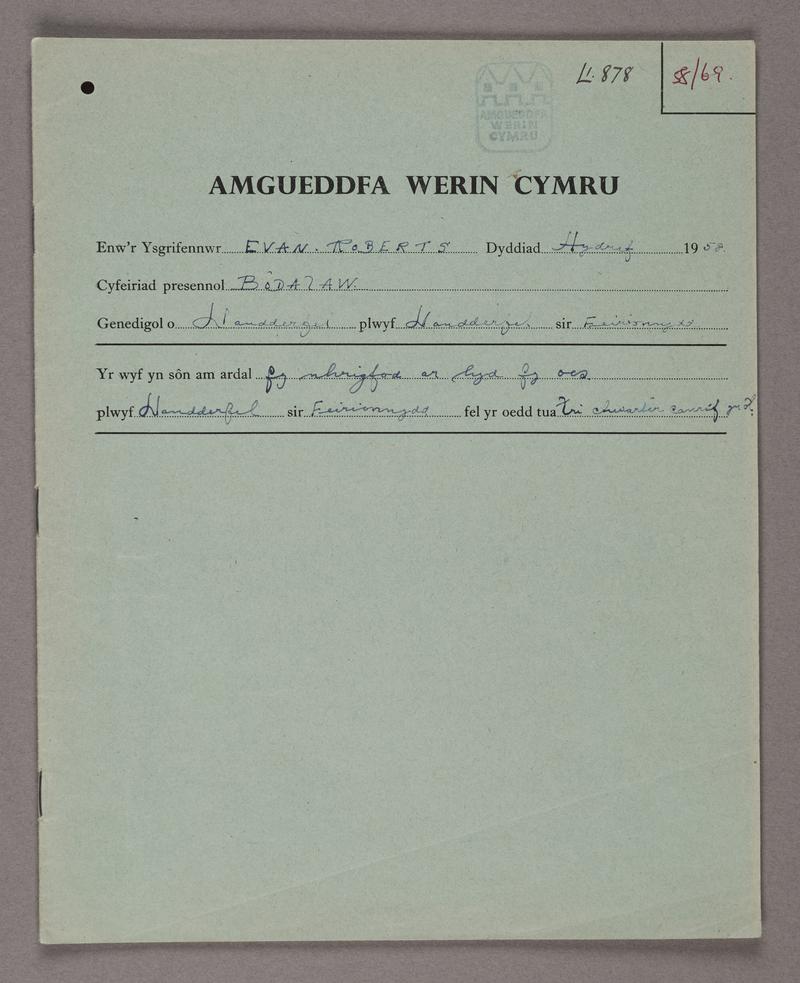 Ll. 878
58/69.
AMGUEDDFA
WERIN
CYMRU
AMGUEDDFA WERIN CYMRU
Enw'r Ysgrifennwr EVAN. ROBERTS Dyddiad Hydref 1958
Cyfeiriad presennol
Genedigol o Llandderfel plwyf Llandderfel sir Feirionnydd
Yr wyf yn sôn am ardal fy nhrigfod ar hyd fy oes.
plwyf Llandderfel sir Feirionnydd fel yr oedd tua Tri chwarter canrif yn